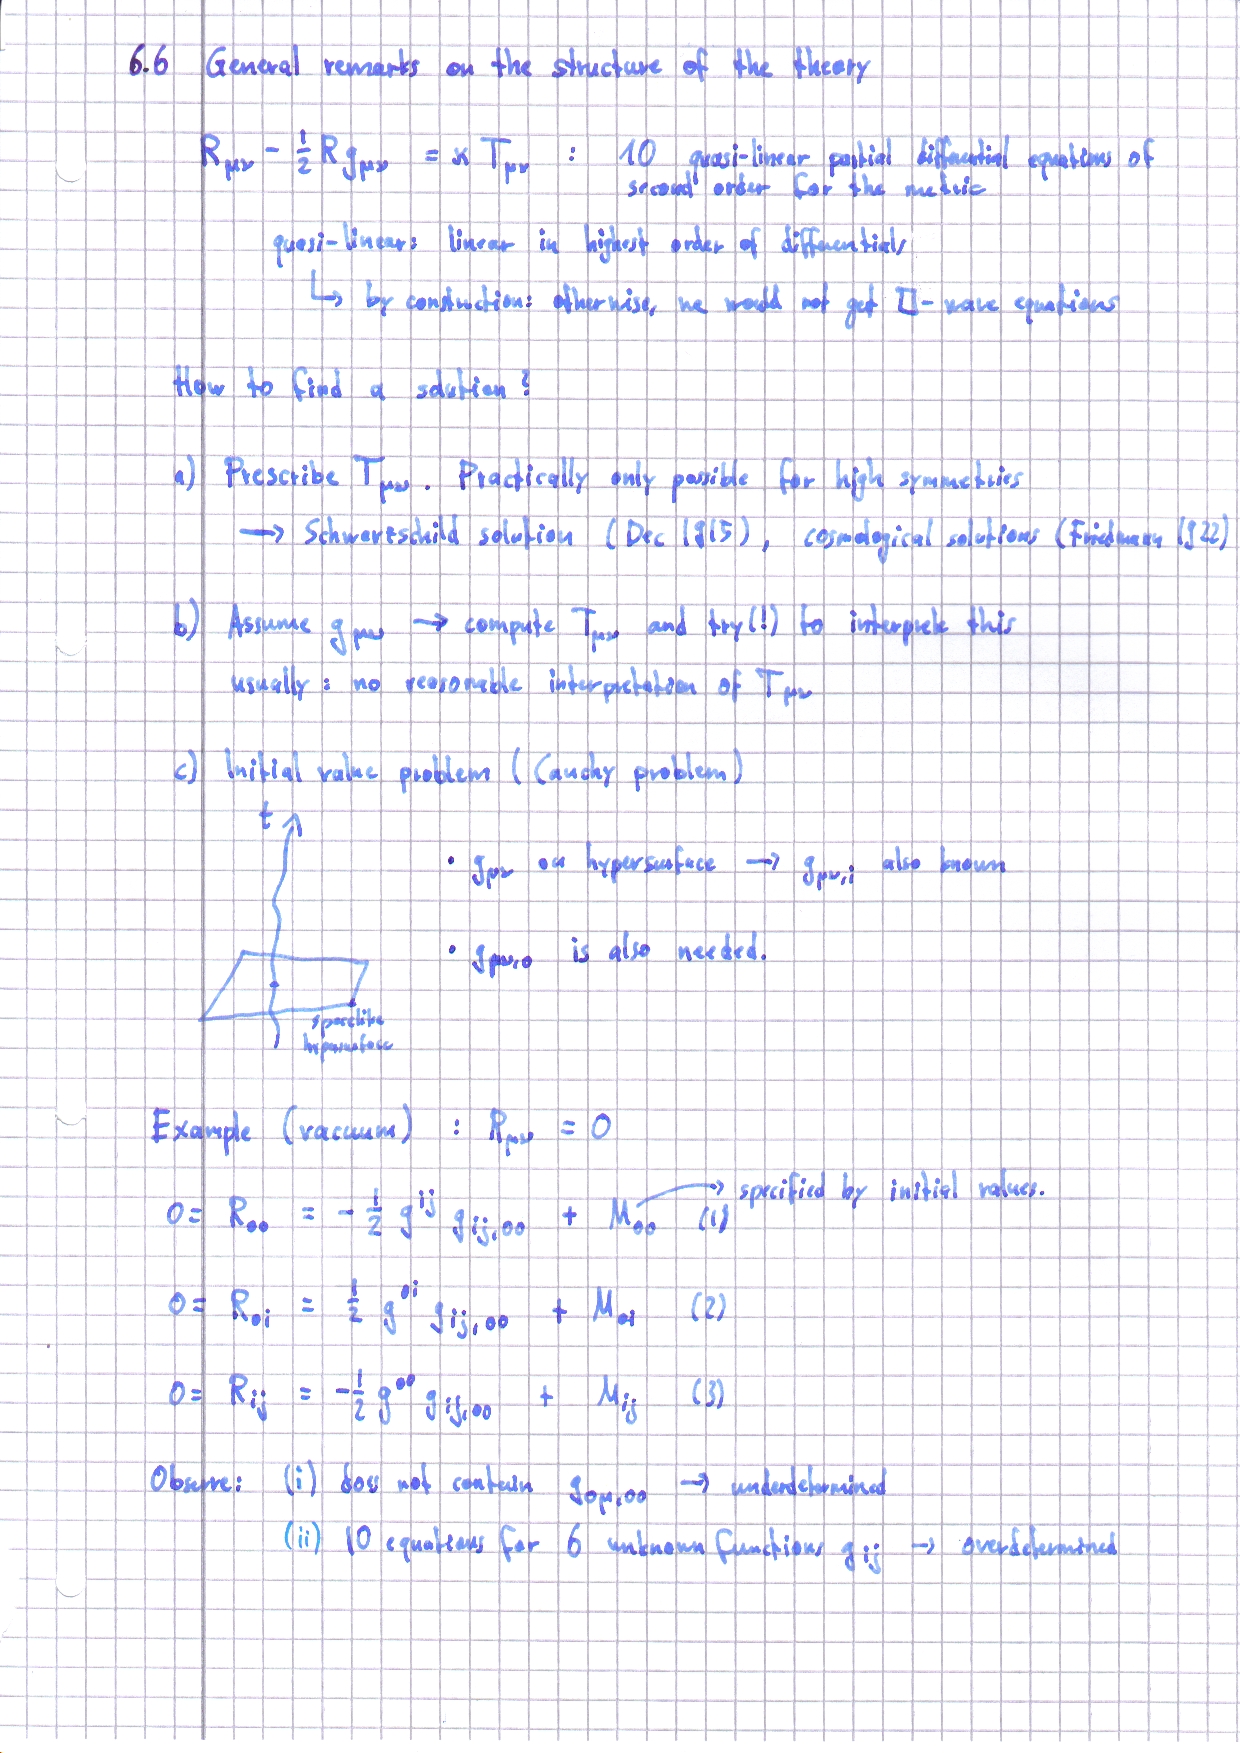 6.6 General remarks on the structure of the theory
R_μν - 1/2 R g_μν = κ T_μν : 10 quasi-linear partial differential equations of
second order for the metric
quasi-linear: linear in highest order of differentials
↳ by construction: otherwise, we would not get □-wave equations
How to find a solution?
a) Prescribe T_μν. Practically only possible for high symmetries
→ Schwartschild solution (Dec 1915), cosmological solutions (Friedmann 1922)
b) Assume g_μν → compute T_μν and try(!) to interprete this
usually: no reasonable interpretation of T_μν
c) Initial value problem (Cauchy problem)
t
• g_μν on hypersurface → g_μν,i also known
• g_μν,0 is also needed.
spacelike
hypersurface
Example (vacuum) : R_μν = 0
→ specified by initial values.
0 = R_00 = -1/2 g^ij g_ij,00 + M_00 (1)
0 = R_0i = 1/2 g^0i g_ij,00 + M_0i (2)
0 = R_ij = -1/2 g^00 g_ij,00 + M_ij (3)
Observe: (i) does not contain g_0μ,00 → underdetermined
(ii) 10 equations for 6 unknown functions g_ij → overdetermined